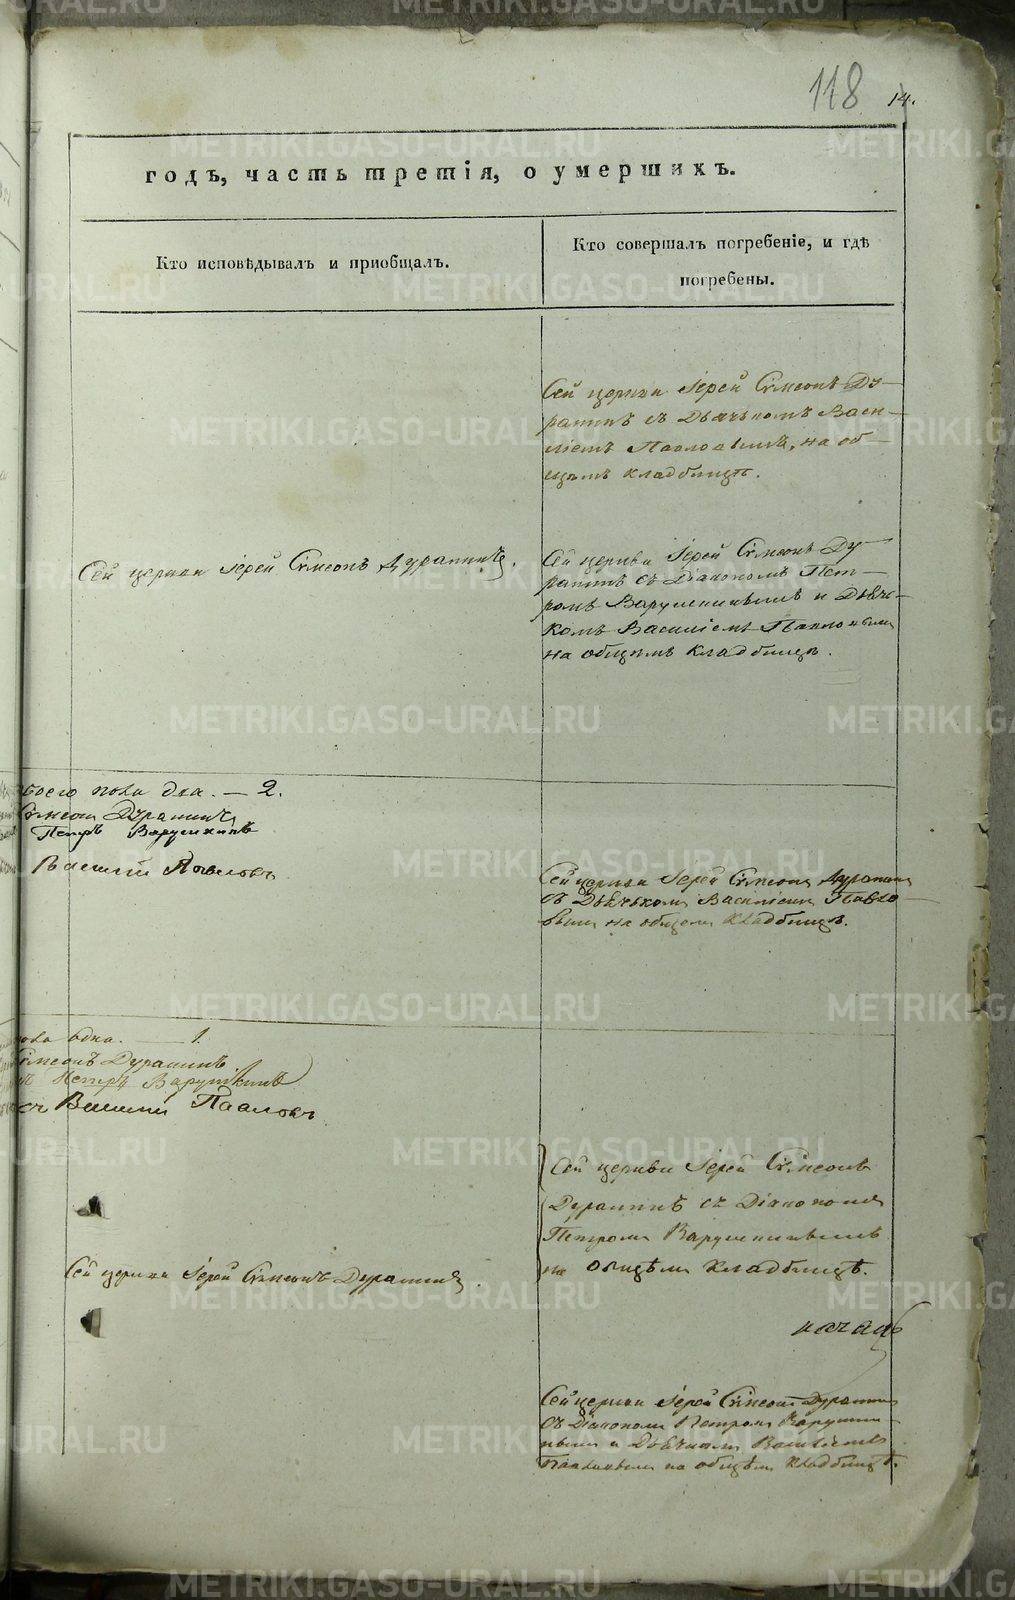 118
14.
годъ, часть третія, о умершихъ.
Кто исповѣдывалъ и пріобщалъ.
Кто совершалъ погребеніе, и гдѣ
погребены.
Сей церкви Іерей Сѵмеонъ Ду-
ранинъ съ Дьячкомъ Васи-
ліемъ Павловымъ, на об-
щемъ кладбищѣ.
Сей церкви Іерей Сѵмеонъ Дуранинъ.
Сей церкви Іерей Сѵмеонъ Ду-
ранинъ съ Діакономъ Пет-
ромъ Варушкинымъ и Дьяч-
комъ Василіемъ Павловымъ
на общемъ кладбищѣ.
обоего пола два. — 2.
Сѵмеонъ Дуранинъ
Петръ Варушкинъ
Василій Павловъ
Сей церкви Іерей Сѵмеонъ Дуранинъ
съ Дьячкомъ Василіемъ Павло-
вымъ на общемъ кладбищѣ.
пола одна. — 1.
Сѵмеонъ Дуранинъ.
Петръ Варушкинъ
Василій Павловъ
Сей церкви Іерей Сѵмеонъ
Дуранинъ съ Діакономъ
Петромъ Варушкинымъ
на общемъ кладбищѣ.
Сей церкви Іерей Сѵмеонъ Дуранинъ.
Сей церкви Іерей Сѵмеонъ Дуранинъ
съ Діакономъ Петромъ Варушки-
нымъ и Дьячкомъ Василіемъ
Павловымъ на общемъ кладбищѣ.
METRIKI.GASO-URAL.RU